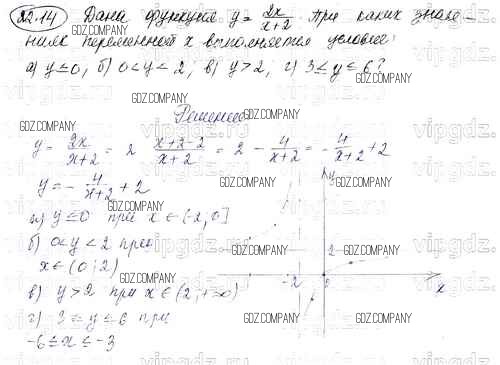 22.14 Дана функция y = 2x/x+2 при каких значе-
ниях переменной x выполняется условие:
а) y ≤ 0, б) 0 < y < 2, в) y > 2; г) 3 ≤ y ≤ 6?
Решение
y = 2x/x+2 = 2 x+2-2/x+2 = 2 - 4/x+2 = - 4/x+2 + 2
y = - 4/x+2 + 2
а) y ≤ 0 при x ∈ (-2, 0]
б) 0 < y < 2 при
x ∈ (0; 2)
в) y > 2 при x ∈ (2, +∞)
г) 3 ≤ y ≤ 6 при
-6 ≤ x ≤ -3
y
2
-2
0
x
GDZ.COMPANY
vipgdz.com